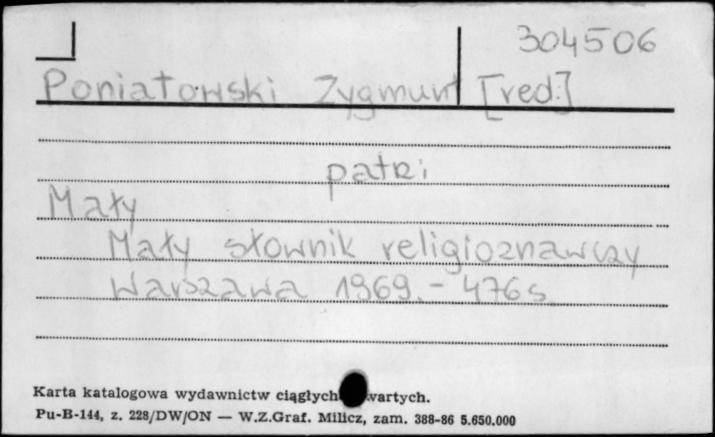 304506
Poniatowski Zygmunt [red.]
patrz
Mały
Mały słownik religioznawczy
Warszawa 1969. - 476 s.
Karta katalogowa wydawnictw ciągłych
Pu-B-144, z. 228/DW/ON — W.Z.Graf. Milicz, zam. 388-86 5.650.000